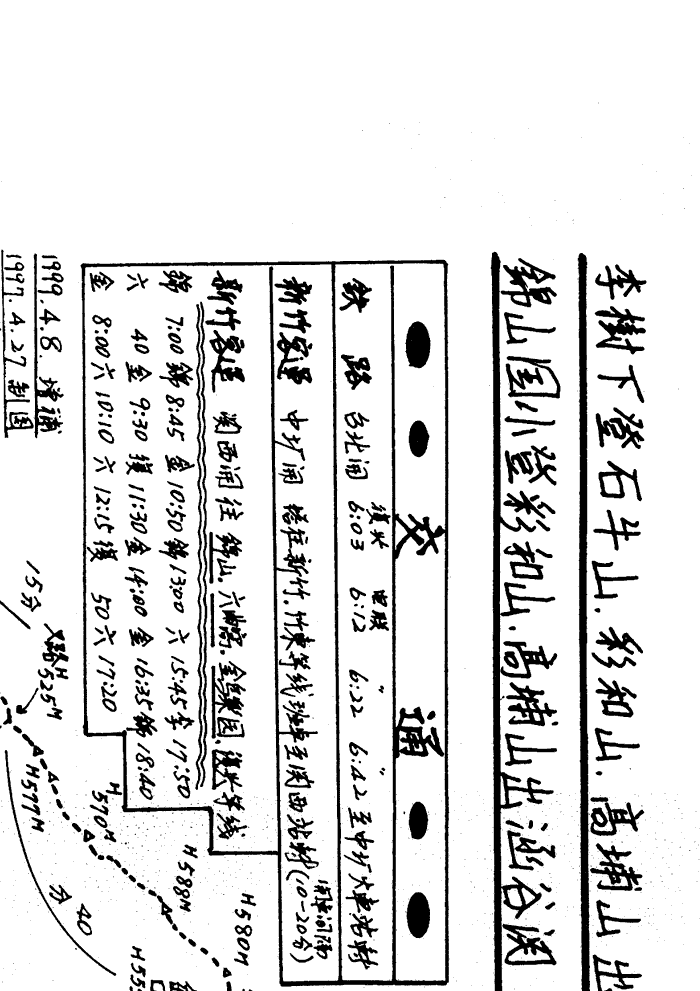 李樹下登石牛山.彩和山.高埔山出
錦山国小登彩和山.高埔山出涵谷関
● ● 交 通 ● ●
鉄路 台北開 復興 6:03 電聯 6:12 〃 6:22 〃 6:42 至中圹火車站轉
新竹客運 中圹開 搭往新竹.竹東等线班車至関西站轉(10-20分)
新竹客運 関西開往 錦山.六曲窩.金鳥樂园.復兴等线
錦 7:00 錦 8:45 金 10:50 錦 13:00 六 15:45 李 17:50
六 40 金 9:30 復 11:30 金 14:00 金 16:35 錦 18:40
金 8:00 六 10:10 六 12:15 復 50 六 17:20
1999.4.8.增補
1997.4.27.制図
15分
叉路H525M
H577M
H570M
H588M
H580M
40分
H55